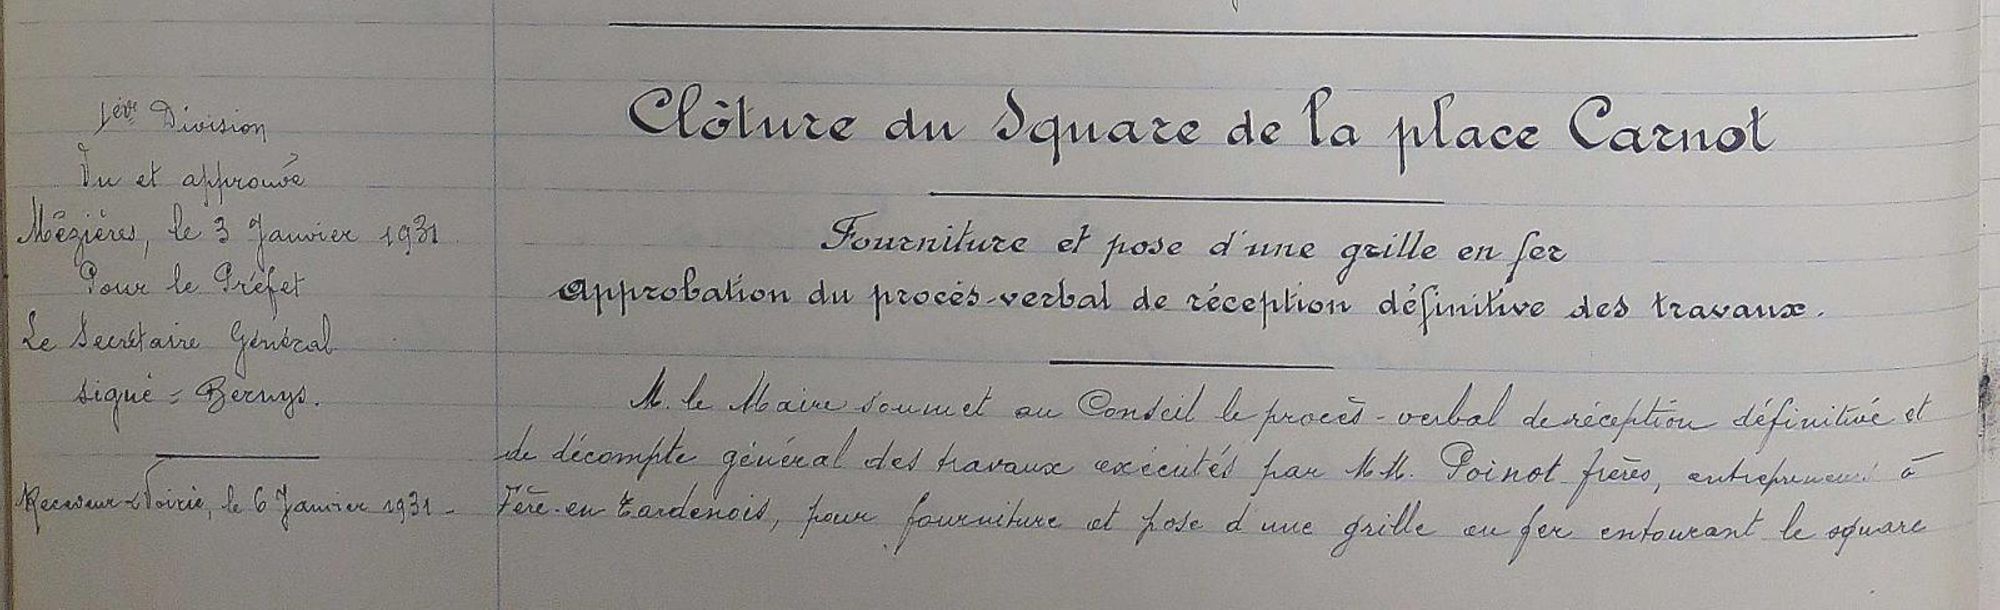 1ère Division
Vu et approuvé
Mézières, le 3 Janvier 1931
Pour le Préfet
Le Secrétaire Général
signé = Bernys.
Receveur & Voirie, le 6 Janvier 1931 -
Clôture du Square de la place Carnot
Fourniture et pose d'une grille en fer
Approbation du procès-verbal de réception définitive des travaux.
M. le Maire soumet au Conseil le procès-verbal de réception définitive et
de décompte général des travaux exécutés par M.M. Poinot frères, entrepreneurs à
Fère-en Tardenois, pour fourniture et pose d'une grille en fer entourant le square